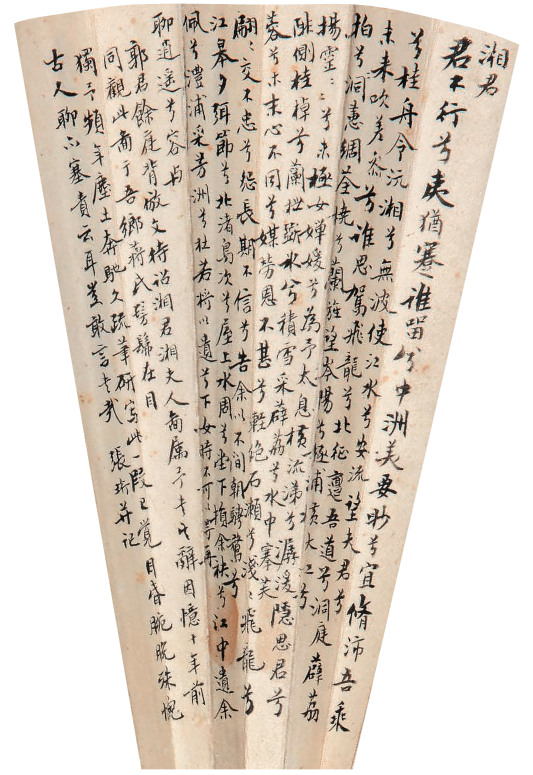 湘君
君不行兮夷猶蹇誰留兮中洲美要眇兮宜脩沛吾乘
兮桂舟令沅湘兮無波使江水兮安流望夫君兮
未來吹參差兮誰思駕飛龍兮北征邅吾道兮洞庭薜荔
拍兮洞蕙綢荃橈兮蘭旌望岑陽兮極浦橫大江兮
揚靈〻兮未極女嬋媛兮為予太息橫流涕兮潺湲隱思君兮
陫側桂棹兮蘭枻斲冰兮積雪采薜荔兮水中搴芙
蓉兮木末心不同兮媒勞恩不甚兮輕絕石瀨兮淺〻飛龍兮
翩〻交不忠兮怨長期不信兮告余以不閒朝騁騖兮
江皋夕弭節兮北渚鳥次兮屋上水周兮堂下捐余玦兮江中遺余
佩兮澧浦采芳洲兮杜若將以遺兮下女時不可兮再
聊逍遙兮容与
郭君餘庭背文待詔湘君湘夫人圖属予書辭因憶十年前
同觀此圖于吾鄉蔣氏髣髴在目
獨予頻年塵土奔馳久疏筆研寫此一段已覺目昏腕脫殊愧
古人聊以塞責云耳豈敢言書哉 張珩并記